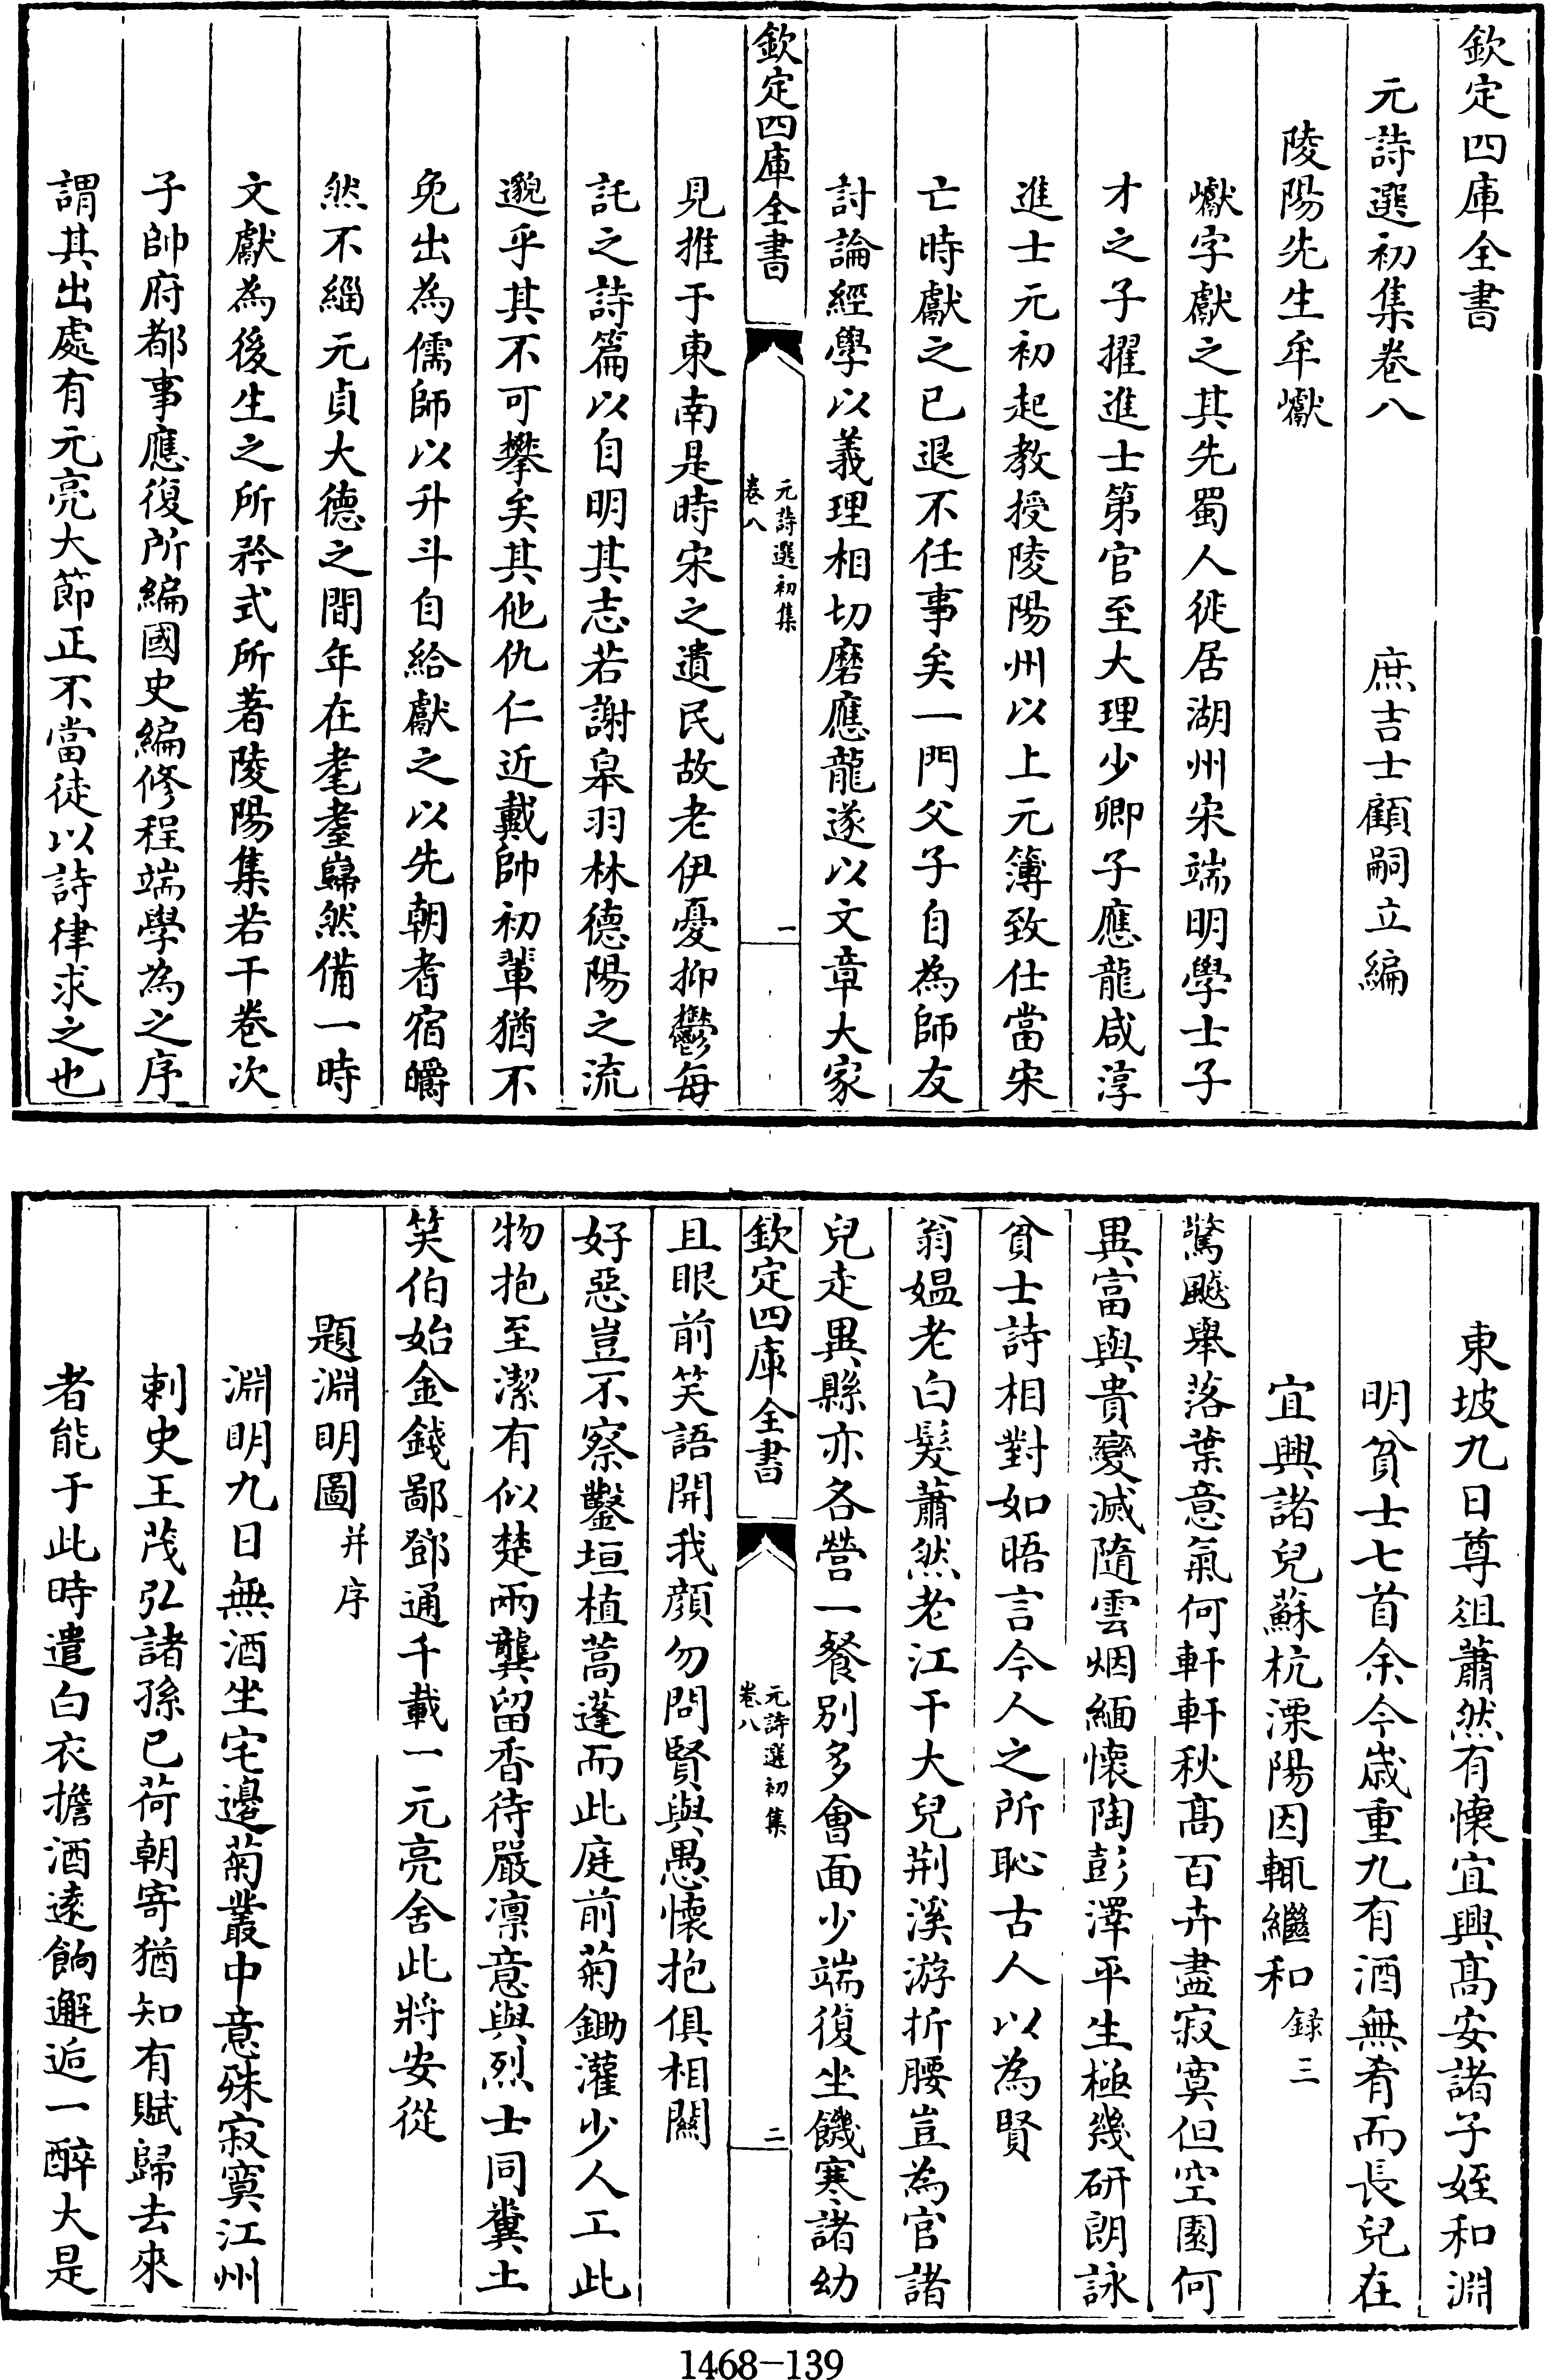 欽定四庫全書
元詩選初集卷八
庶吉士顧嗣立編
陵陽先生牟巘
巘字獻之其先蜀人徙居湖州宋端明學士子
才之子擢進士第官至大理少卿子應龍咸淳
進士元初起教授陵陽州以上元簿致仕當宋
亡時獻之已退不任事矣一門父子自為師友
討論經學以義理相切磨應龍遂以文章大家
欽定四庫全書
元詩選初集
卷八
一
見推于東南是時宋之遺民故老伊憂抑鬱每
託之詩篇以自明其志若謝皋羽林德陽之流
邈乎其不可攀矣其他仇仁近戴帥初輩猶不
免出為儒師以升斗自給獻之以先朝耆宿皭
然不緇元貞大德之間年在耄耋巋然備一時
文獻為後生之所矜式所著陵陽集若干卷次
子帥府都事應復所編國史編修程端學為之序
謂其出處有元亮大節正不當徒以詩律求之也
東坡九日尊俎蕭然有懷宜興高安諸子姪和淵
明貧士七首余今歲重九有酒無肴而長兒在
宜興諸兒蘇杭溧陽因輒繼和錄三
驚飈舉落葉意氣何軒軒秋高百卉盡寂寞但空園何
異富與貴變滅隨雲烟緬懷陶彭澤平生極幾研朗詠
貧士詩相對如晤言今人之所恥古人以為賢
翁媼老白髮蕭然老江干大兒荆溪游折腰豈為官諸
兒走異縣亦各營一餐別多會面少端復坐饑寒諸幼
欽定四庫全書
元詩選初集
卷八
二
且眼前笑語開我顔勿問賢與愚懷抱俱相關
好惡豈不察鑿垣植蒿蓬而此庭前菊鋤灌少人工此
物抱至潔有似楚兩龔留香待嚴凛意與烈士同糞土
笑伯始金錢鄙鄧通千載一元亮舍此將安從
題淵明圖并序
淵明九日無酒坐宅邊菊叢中意殊寂寞江州
刺史王茂弘諸孫已荷朝寄猶知有賦歸去來
者能于此時遣白衣擔酒遠餉邂逅一醉大是
1468-139